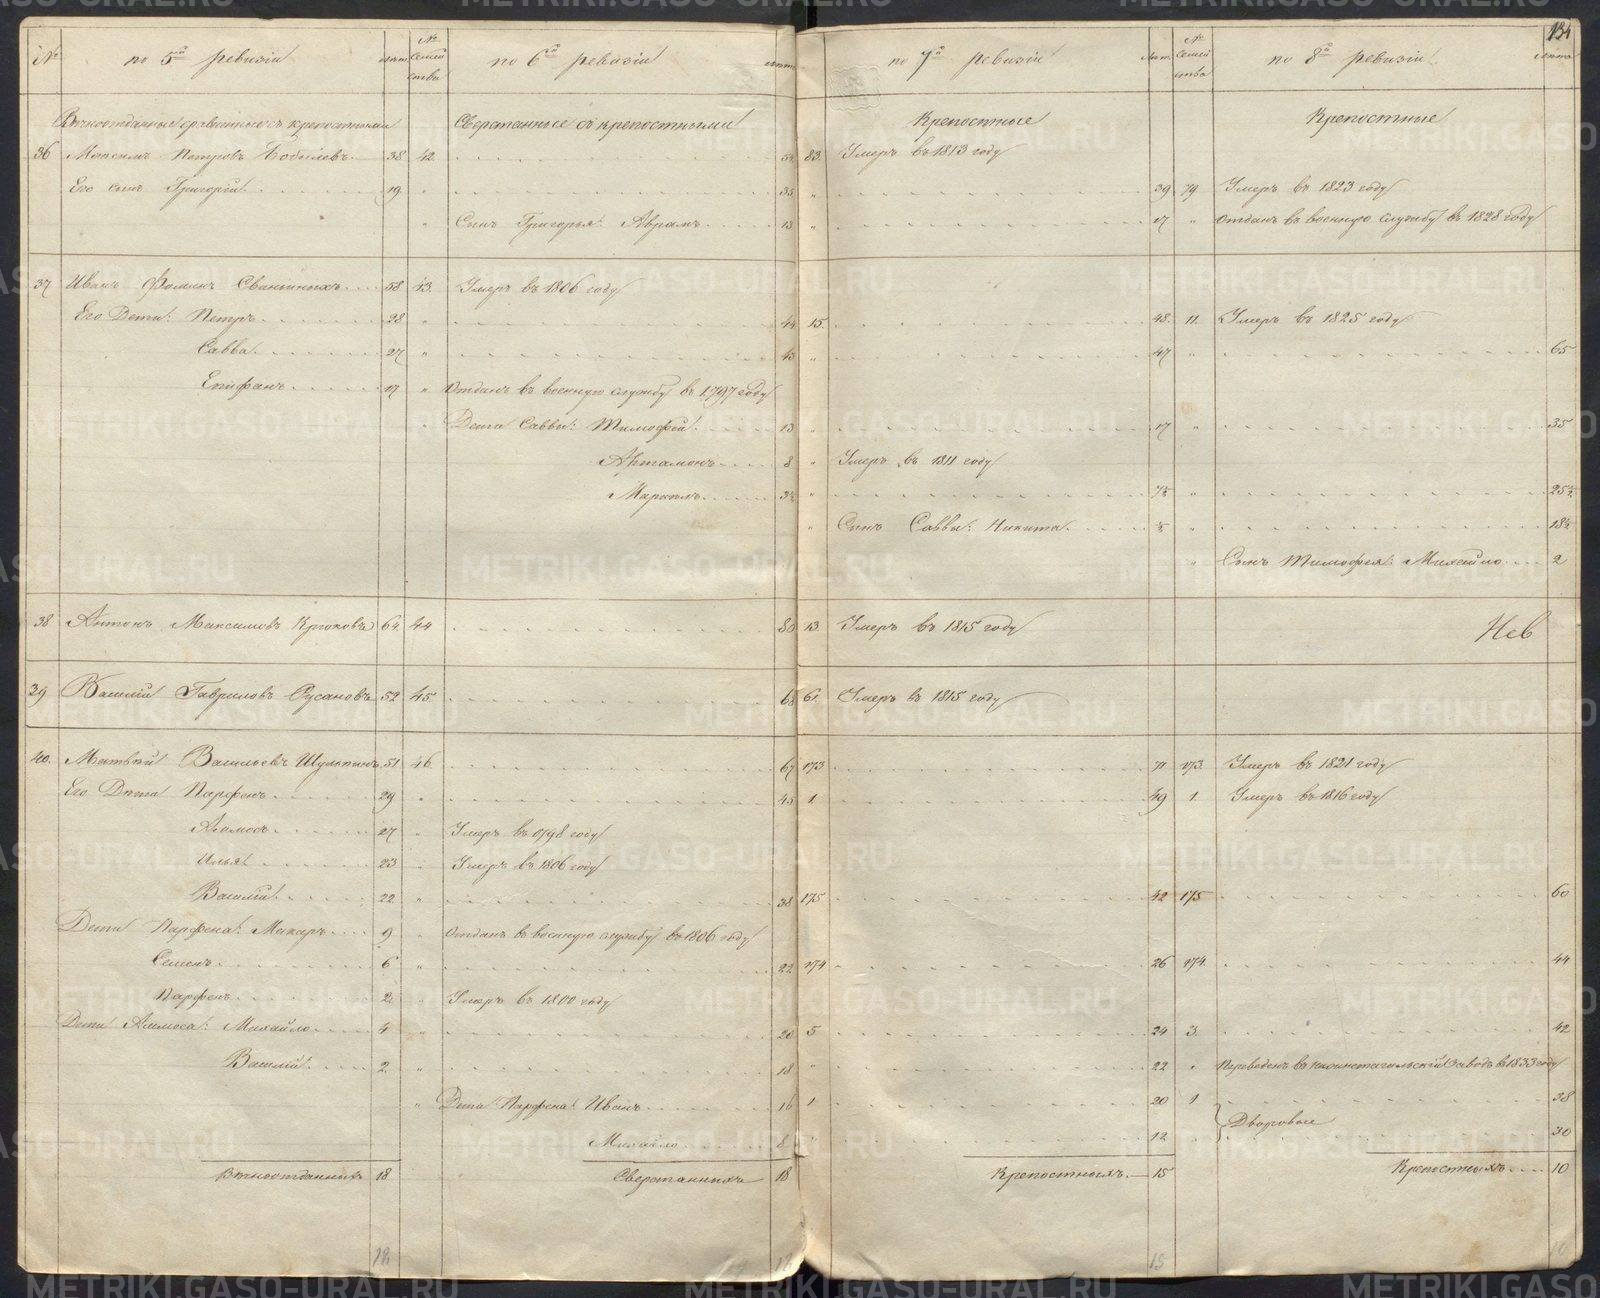 134
№ по 5й ревизіи лѣта № семейства по 6й ревизіи лѣта по 7й ревизіи лѣта № семейства по 8й ревизіи лѣта
Вѣчноотданные сравненные съ крепостными Сверстанные съ крепостными Крепостные Крепостные
36 Петровъ 38 42 54 83 Умеръ въ 1813 году
Его сынъ Григорій 19 " 35 " 39 79 Умеръ въ 1823 году
" Сынъ Григорья: Аврамъ 13 " 17 " Отданъ въ военную службу въ 1828 году
37 Иванъ Фоминъ Свининыхъ 58 43 Умеръ въ 1806 году
Его Дети: Петръ 28 " 44 15 48 11 Умеръ въ 1825 году
Савва 27 " 43 " 47 " 65
Епифанъ 17 " Отданъ въ военную службу въ 1797 году
" Дети Саввы: Тимофей 13 " 17 " 35
Артамонъ 8 " Умеръ въ 1811 году
Маркелъ 3½ " 7½ " 25½
" Сынъ Саввы: Никита ½ " 18½
" Сынъ Тимофея: Михайло 2
38 Антонъ Максимовъ Крюковъ 64 44 80 13 Умеръ въ 1815 году
Нев
39 Василій Гавриловъ Русановъ 52 45 68 61 Умеръ въ 1815 году
40 Матвѣй Васильевъ Шульпинъ 51 46 67 173 71 173 Умеръ въ 1821 году
Его Дѣти Парфенъ 29 " 45 1 49 1 Умеръ въ 1816 году
Аммосъ 27 " Умеръ въ 1798 году
Илья 23 " Умеръ въ 1806 году
Василій 22 " 38 175 42 175 60
Дети Парфена: Макаръ 9 " Отданъ въ военную службу въ 1806 году
Семенъ 6 " 22 174 26 174 44
Парфенъ 2 " Умеръ въ 1800 году
Дети Аммоса: Михайло 4 " 20 5 24 3 42
Василій 2 " 18 " 22 " Переведенъ въ Нижнетагильскій Заводъ въ 1833 году
" Дети Парфена: Иванъ 16 1 20 1 38
Дворовые
Михайло 8 " 12 30
Вѣчноотданныхъ 18 Сверстанныхъ 18 Крепостныхъ 15 Крепостныхъ 10
18 18 15 10
METRIKI.GASO-URAL.RU